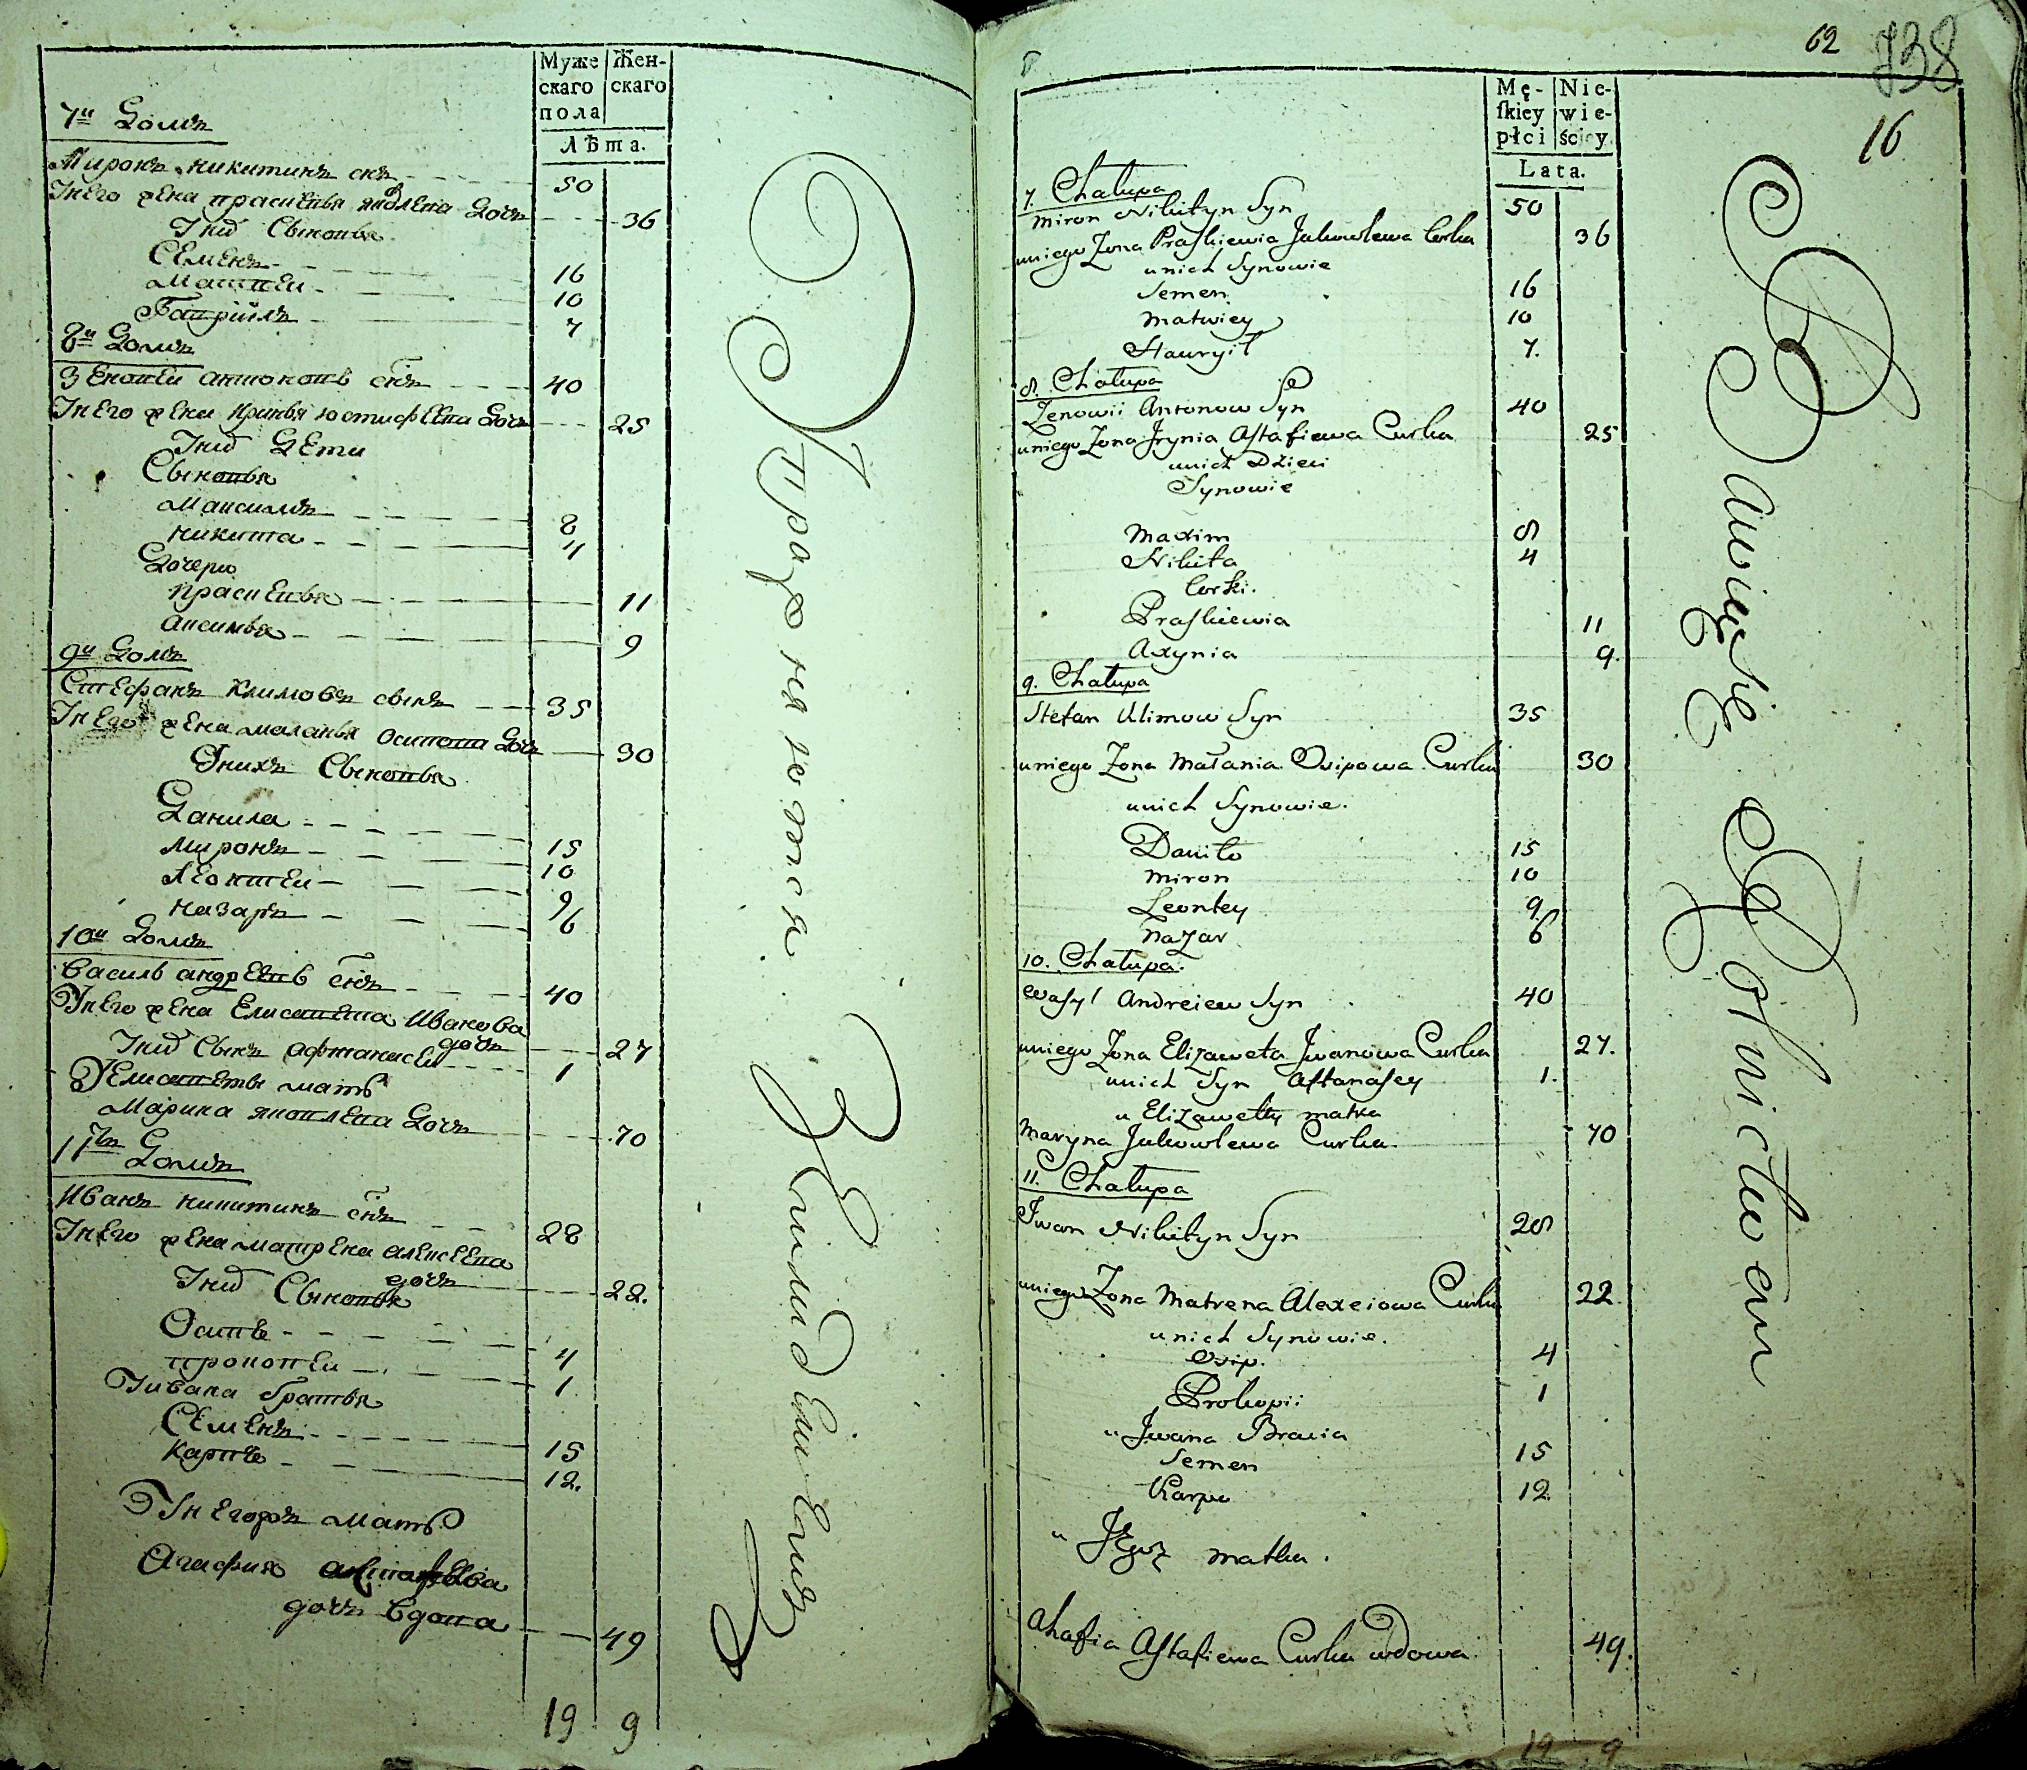 Муже Жен-
скаго скаго
пола
Лѣта.
7й Домъ
Миронъ Никитинъ снъ 50
Унего жена прасковья яковлева дочь 36
Унихъ Сыновья
Семенъ 16
Матвеи 10
Гаврійлъ 7
8й Домъ
Зеновеи антоновъ снъ 40
Унего жена Иринья юстифеева дочь 25
Унихъ Дети
Сыновья
Максимъ 8
Никита 4
Дочери
Прасковья 11
Аксинья 9
9й Домъ
Стефанъ Климовъ сынъ 35
Унего жена маланья осипова дочь 30
Унихъ Сыновья
Данила 15
Миронъ 10
Леонтеи 9
Назаръ 6
10й Домъ
Василь андреевъ снъ 40
Унего жена Елисавета Иванова
дочь 27
Унихъ Сынъ афтанасеи 1
У Елисаветы мать
Марина яковлева дочь 70
11й Домъ
Иванъ никитинъ снъ 28
Унего жена матрена алексеева
дочь 22.
Унихъ Сыновья
Осипъ 4
Прокопеи 1
У ивана братья
Семенъ 15
Карпъ 12.
Унегожъ мать
Агафия астафьева
дочь вдова 49
19 9
Упражняются Вхлебопашестве
62
738
16
Mę- Nie-
skiey wie-
płci ściey
Lata.
7. Chałupa
Miron Nikityn Syn 50
uniego Zona Praskiewia Jakowlewa Corka 36
unich Synowie
Semen 16
Matwiey 10
Hawryił 7.
8. Chałupa
Zenowii Antonow Syn 40
uniego Zona Jrynia Astafiewa Curka 25
unich Dzieci
Synowie
Maxim 8
Nikita 4
Corki.
Praskiewia 11
Axynia 9.
9. Chałupa
Stefan Klimow Syn 35
uniego Zona Małania Osipowa Curka 30
unich Synowie.
Daniło 15
Miron 10
Leontey 9.
Nazar 6
10. Chałupa.
Wasyl Andreiew Syn 40
uniego Zona Elizaweta Jwanowa Curka 27.
unich Syn Aftanasey 1.
u Elizawetty matka
Maryna Jakowlewa Curka. 70
11. Chałupa
Jwan Nikityn Syn 28
uniego Zona Matrena Alexeiowa Curka 22.
unich Synowie.
Osip. 4
Prokopii 1
u Jwana Bracia
Semen 15
Karpo 12.
u Jegoz matka.
Ahafia Astafiewa Curka wdowa 49.
19 9
Bawią się Rolnictwem